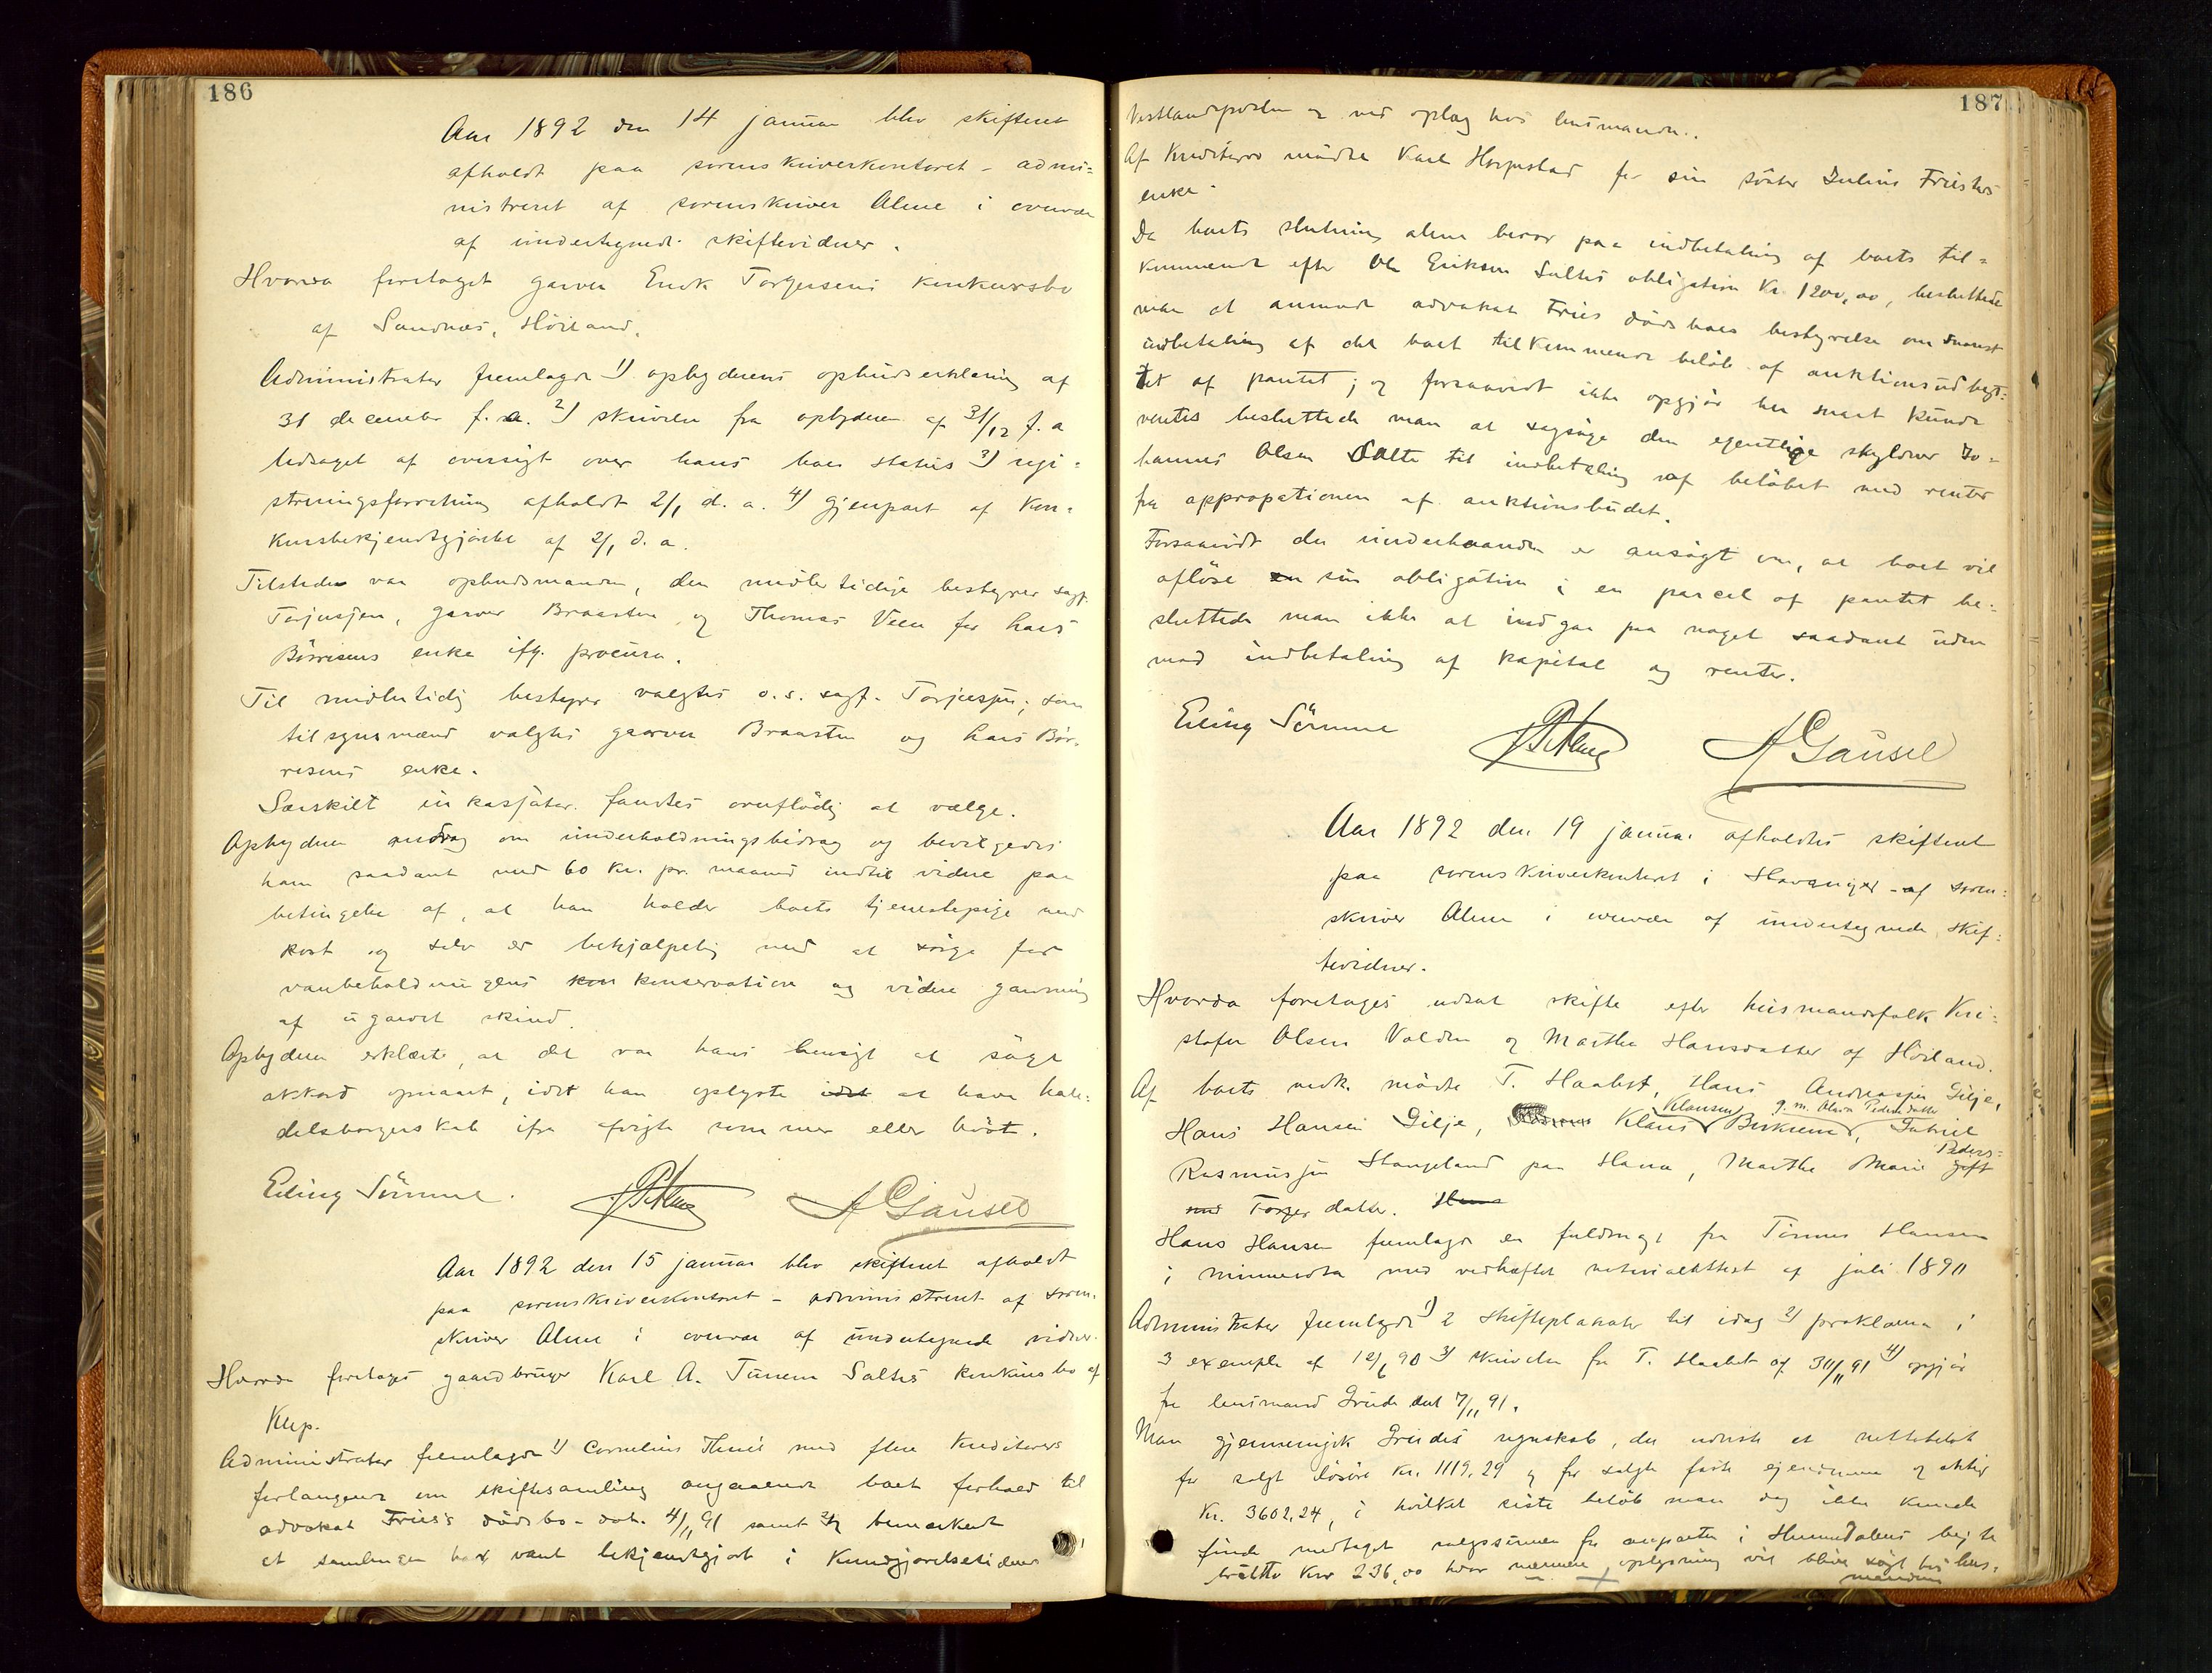 186
Aar 1892 den 14 januar blev skifteret
afholdt paa sorenskriverkontoret – admi=
nistreret af sorenskriver Alme i overvær
af undertegnede skiftevidner.
Hvorda foretoges garver Enok Torgersens konkursbo
af Sandnæs, Høiland.
Administrator fremlagde 1) opbyderens opbudserklæring af
31 december f. a. 2) skrivelse fra opbyderen af 31/12 f. a
ledsaget af oversigt over hans boes status 3) regi=
streringsforretning afholdt 2/1 d. a. 4) gjenpart af Kon=
kursbekjendtgjørelse af 2/1 d. a.
Tilstede var opbudsmanden, den midlertidige bestyrer sagf.
Torjusjen, garver Braasten og Thomas Veen for Lars
Børresens enke ifg. procura.
Til midlertidig bestyrer valgtes o.s. sagf. Torjusjen; som
tilsynsmænd valgtes garver Braasten og Lars Bør=
resens enke.
Særskilt inkassator fandtes overflødig at vælge.
Opbyderen androg om underholdningsbidrag og bevilgedes
ham saadant med 60 kr. pr. maaned indtil videre paa
betingelse af, at han holder boets tjenestepige med
kost og selv er behjælpelig med at sørge for
varebeholdningens kon konservation og videre garvning
af ugarvet skind.
Opbyderen erklærte, at det var hans hensigt at søge
akkord opnaaet, idet han oplyste idet at have han=
delsborgerskab ifra afvigte sommer eller høst.
Erling Sømme. A Gausel
Aar 1892 den 15 januar blev skifteret afholdt
paa sorenskriverkontoret – administreret af soren=
skriver Alme i overvær af undertegnede vidner.
Hvorda foretoges gaardbruger Karl A. Tunem Saltes konkursbo af
Klep.
Administrator fremlagde 1) Cornelius Thuis med flere kreditorers
forlangende om skiftesamling angaaende boets forhold til
advokat Friis's dødsbo – dat. 4/11 91 samt bemærkede
at samlingen har været bekjendtgjort i Kundgjørelsestidende
187
Vestlandsposten og ved oplag hos lensmanden.
Af Kreditorer mødte Karl Horpestad for sin søster Julius Friisters
enke.
Da boets slutning alene beror paa indbetaling af boets til=
kommende efter Ole Eriksen Saltes obligation Kr. 1200,00, besluttede
man at anmode advokat Friis dødsboes bestyrelse om snarest
indbetaling af det boet tilkommende beløb af auktionsudbyt=
tet af pantet; og forsaavidt ikke opgjør her snart kunde
ventes besluttede man at sagsøge den egentlige skyldner Jo=
hannes Olsen Salte til indbetaling af beløbet med renter
fra appropationen af auktionsbudet.
Forsaavidt der underhaanden er ansøgt om, at boet vil
afløse en sin obligation i en parcel af pantet be=
sluttede man ikke at indgaa paa noget saadant uden
mod indbetaling af kapital og renter.
Erling Sømme A Gausel
Aar 1892 den 19 januar afholdtes skifteret
paa sorenskriverkontoret i Stavanger – af soren=
skriver Alme i overvær af undertegnede skif=
tevidner.
Hvorda foretoges udsat skifte efter husmandsfolk Kri=
stofer Olsen Valden og Marthe Hansdatter af Høiland.
Af boets vedk. mødte T. Haabet, Hans Andreasjen Gilje,
Klausen g. m. Olava Pedersdatter
Hans Hansen Gilje, Klaus Birkrem, Gabriel
Peders=
Rasmusjen Stangeland paa Hana, Marthe Marie gift
med Torger datter. Hans
Hans Hansen fremlagde en fuldmagt fra Tønnes Hansen
i Minnesota med vedhæftet notarialattest af juli 1890
Administrator fremlagde 1) 2 skifteplakater til idag 2) proklama i
3 exempl. af 12/6 90 3) skrivelse fra T. Haabet af 30/11 91 4) opgjør
fra lensmand Grude dat 7/11 91.
Man gjennemgik Grudes regnskab, der udviste et nettobeløb
for solgt løsøre kr. 1119,29 og for solgte faste eiendomme og aktier
Kr. 3602,24, i hvilket siste beløb man dog ikke kunde
finde medtaget salgssummen for anparten i Hummedalens
Kr. 236,00 hvor nærmere oplysning vil blive søgt hos lens=
manden